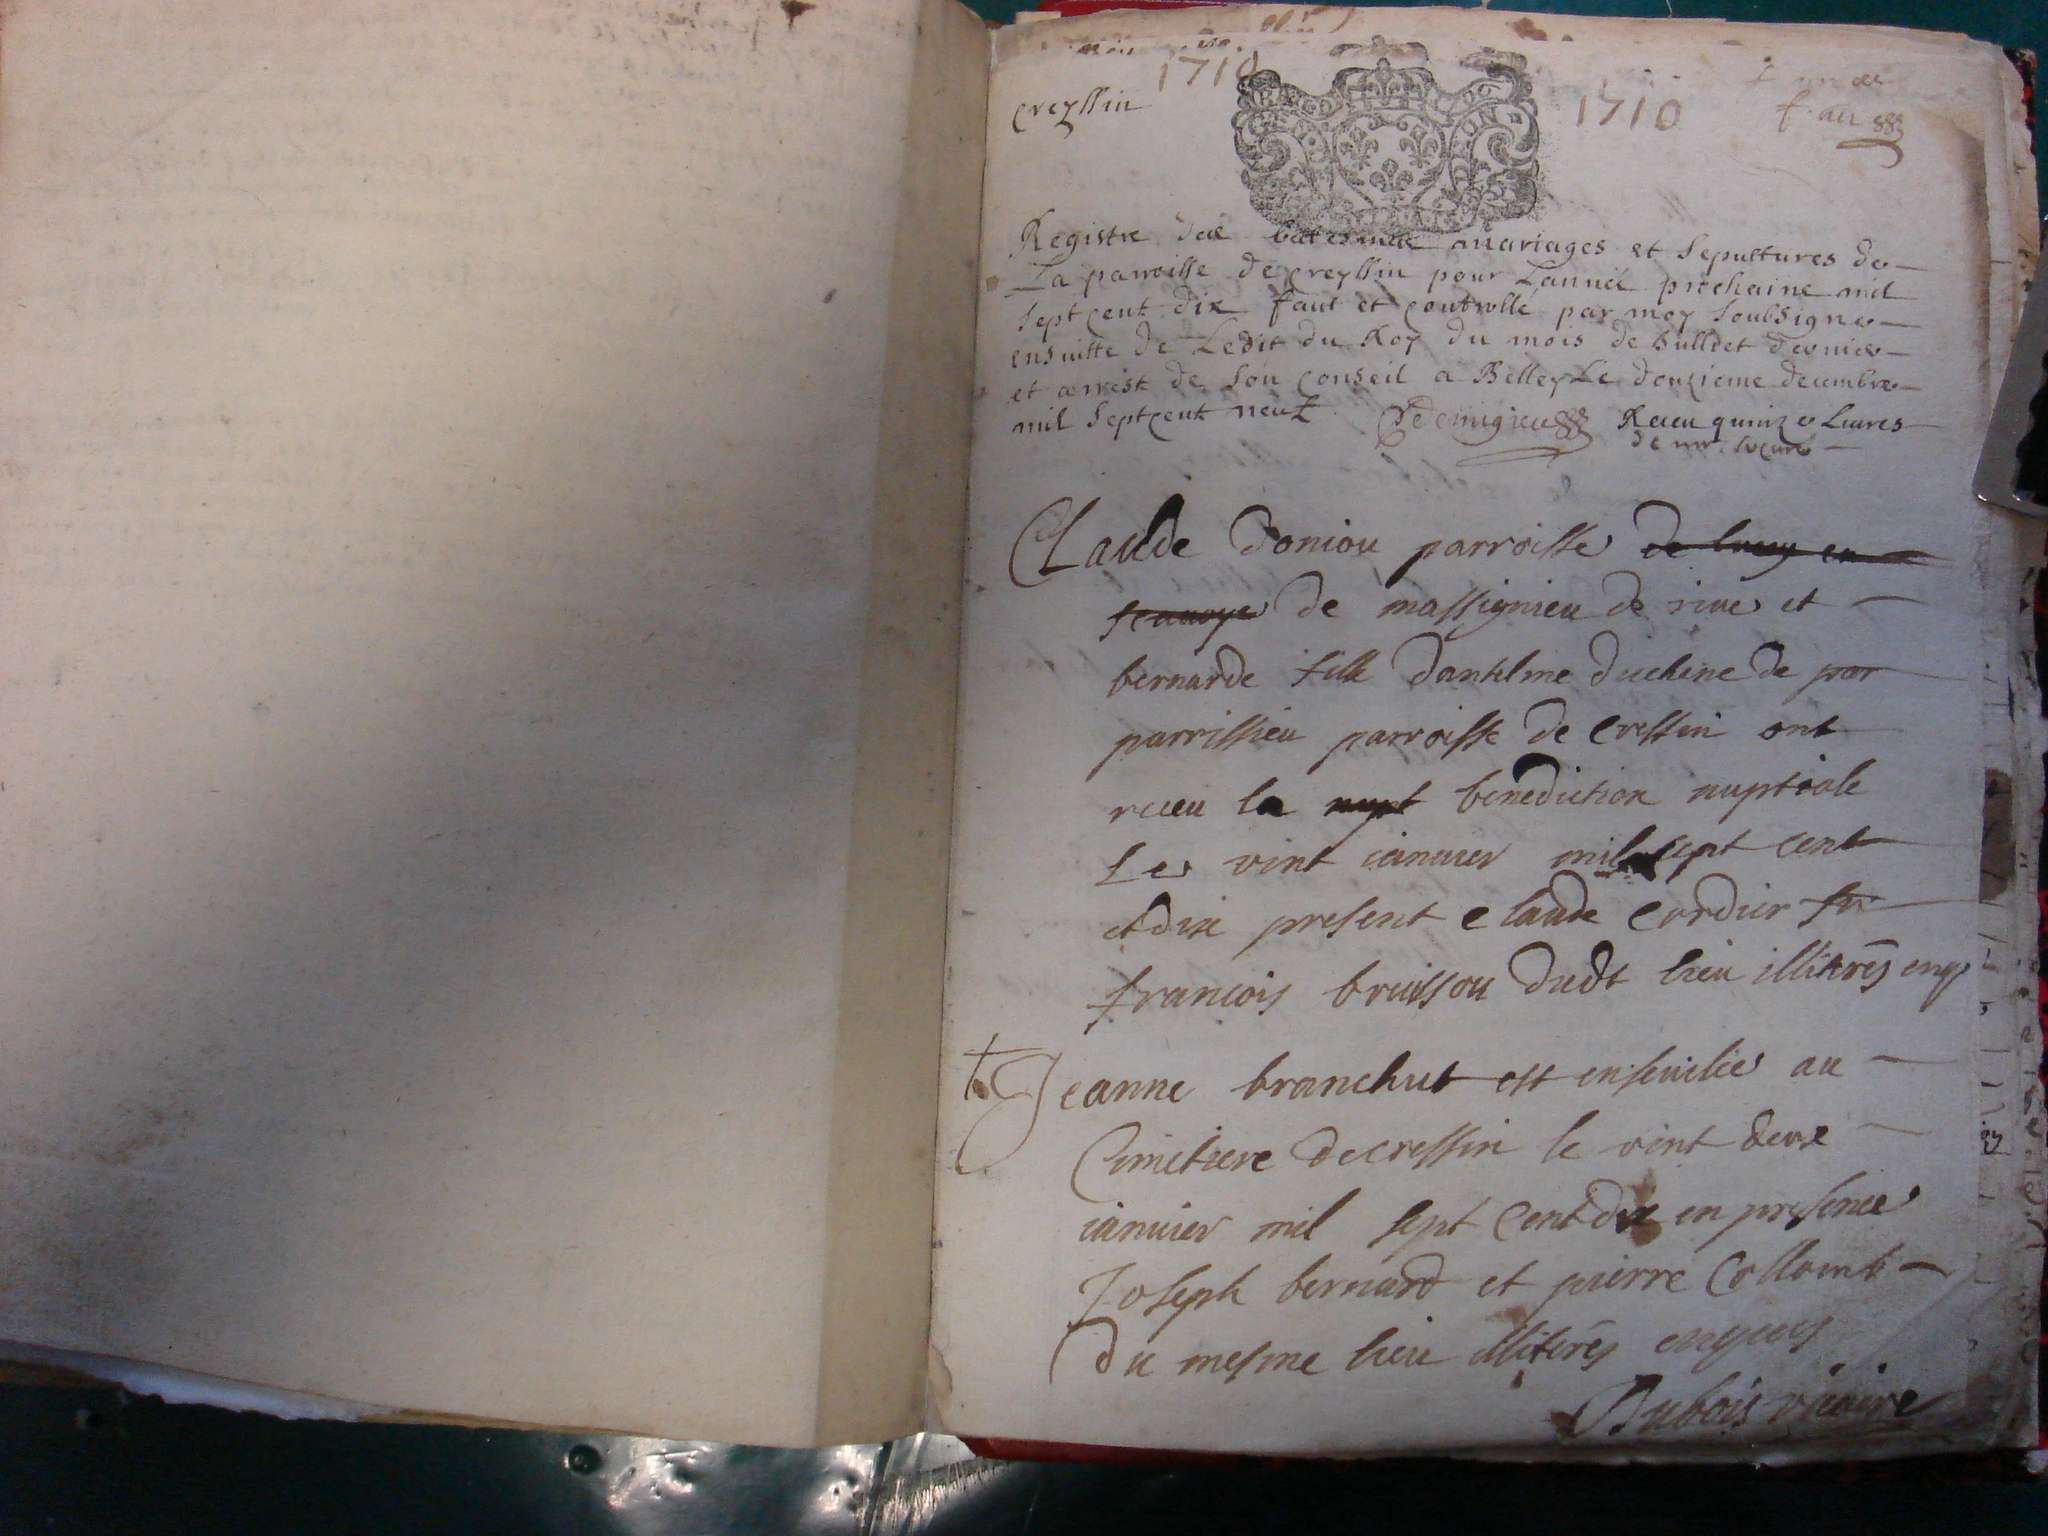 1710
creyssin
1710
Registre des batesmes mariages et sepultures de
La parroisse de creyssin pour Lannée prochaine mil
sept cent dix faut et controllé par moy soubsigne
ensuitte de Ledit du Roy du mois de Juillet dernier
et arrest de son conseil a Belley Le douzieme decembre
mil sept cent neuf Demigieu Receu quinze Livres
de mr. le cure
Claude Doniou parroisse de lucey en
scauoye de massignieu de riue et
bernarde fille dantelme duchene de par
parrissieu parroisse de Cressin ont
receu la nupt benediction nuptiale
Le vint ianuier mil sept cent
et dix present claude cordier fr
francois bruisson dudt lieu illiterés enq
Jeanne branchut est enseuelie au
Cimetiere de cressin le vint deux
ianuier mil sept cent dix en presence
Joseph bernard et pierre Collomb
du mesme lieu illiterés enquis
Dubois vicaire